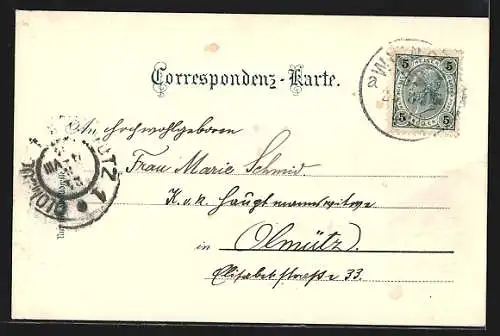 Correspondenz-Karte.
5 5
5 5
An hochwohlgeboren
Frau Marie Schmid
K. u. k. Hauptmannswitwe
in Olmütz.
Elisabetstraße 33.
OLMÜTZ 1